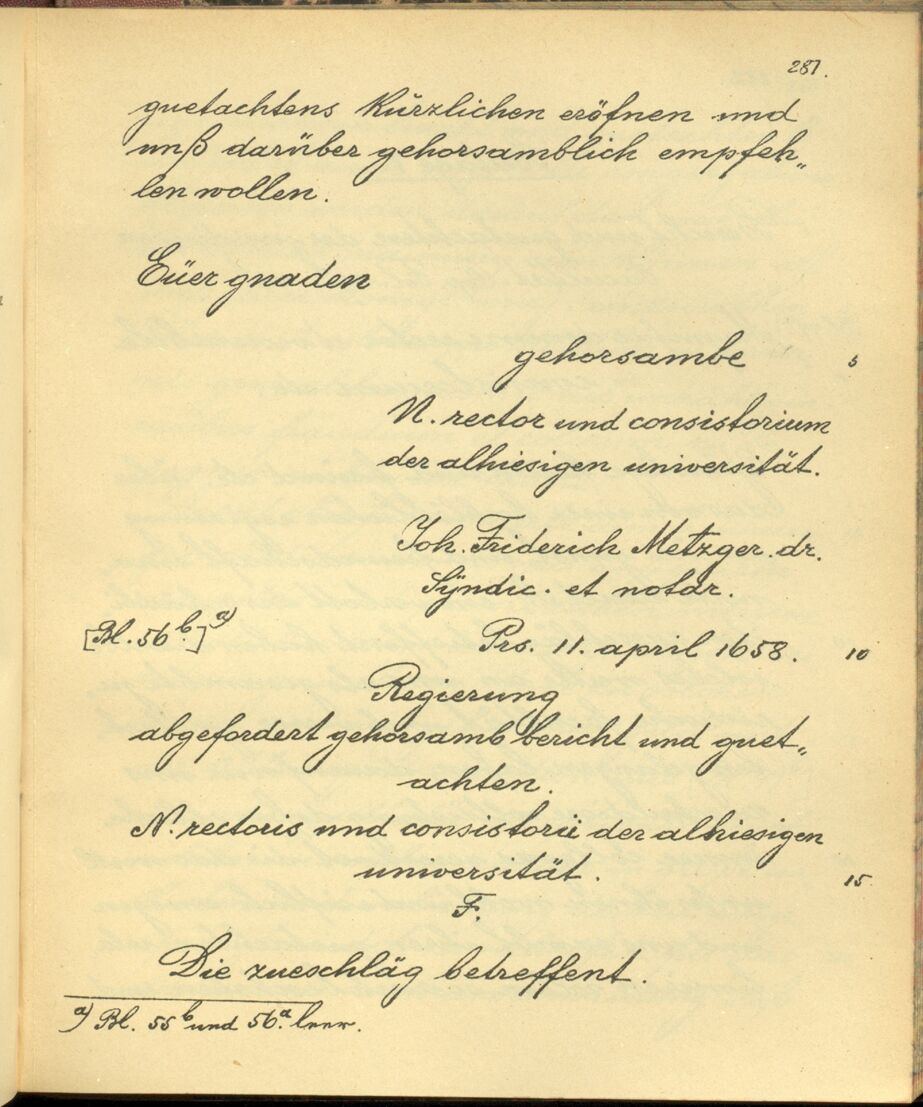 287.
guetachtens kürzlichen eröfnen und
unß darüber gehorsamblich empfeh„
len wollen.
Eüer gnaden
gehorsambe 5
N. rector und consistorium
der alhiesigen universität.
Joh. Friderich Metzger. dr.
Sÿndic. et notar.
[Bl. 56 b.] a) Prs. 11. april 1658. 10
Regierung
abgefordert gehorsamb bericht und guet„
achten.
N. rectoris und consistorii der alhiesigen
universität. 15
F.
Die zueschläg betreffent.
a) Bl. 55 b und 56 a. leer.